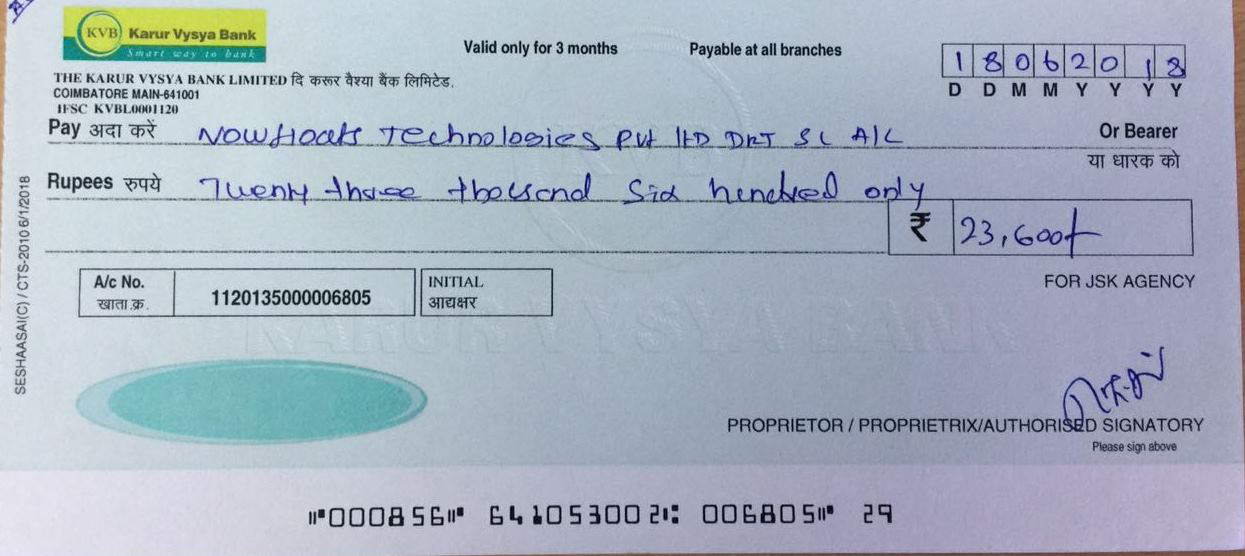 KVB Karur Vysya Bank
Smart way to bank
Valid only for 3 months
Payable at all branches
18062018
D D M M Y Y Y Y
THE KARUR VYSYA BANK LIMITED दि करूर वैश्या बैंक लिमिटेड.
COIMBATORE MAIN-641001
IFSC KVBL0001120
Pay अदा करें Nowfloats Technologies Pvt ltD DKT SL A/C Or Bearer
या धारक को
Rupees रुपये Twenty three thousand Six hundred only
₹ 23,600/-
A/c No.
खाता.क्र.
1120135000006805
INITIAL
आद्यक्षर
FOR JSK AGENCY
KARUR VYSYA BANK
SESHAASAI(C) / CTS-2010 6/1/2018
PROPRIETOR / PROPRIETRIX/AUTHORISED SIGNATORY
Please sign above
⑈000856⑈ 641053002⑆ 006805⑈ 29